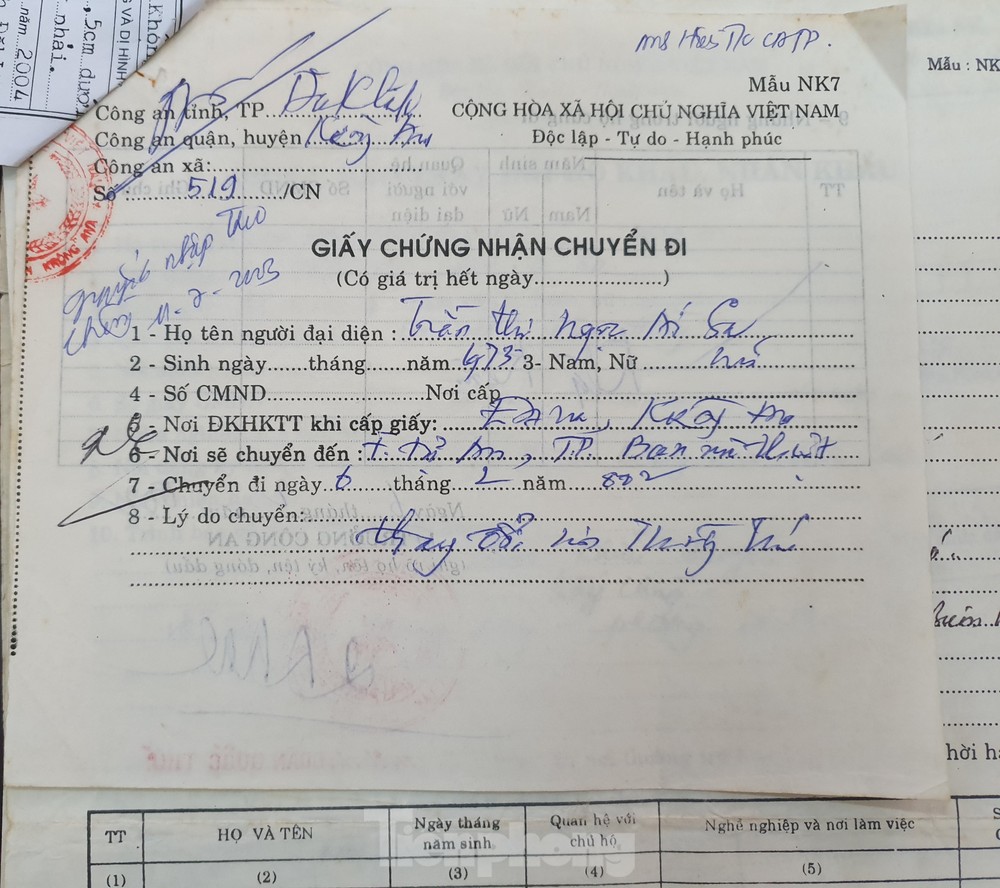 Khôn
5cm dướ
nhải.
G VÀ DỊ HÌNH
năm 2004
CATP.
Mẫu NK7
Mẫu : NK
Công an tỉnh, TP. Đăk Lăk
CỘNG HÒA XÃ HỘI CHỦ NGHĨA VIỆT NAM
Công an quận, huyện Krông Ana
Độc lập - Tự do - Hạnh phúc
Công an xã:
Số 519 /CN
KRÔNG ANA
nhập
11-2-2003
GIẤY CHỨNG NHẬN CHUYỂN ĐI
(Có giá trị hết ngày....................)
1 - Họ tên người đại diện : Trần thị Ngọc Ái Sa
2 - Sinh ngày.......tháng.......năm 1975 3- Nam, Nữ nữ
4 - Số CMND...................Nơi cấp
5 - Nơi ĐKHKTT khi cấp giấy: Krông Ana
6 - Nơi sẽ chuyển đến : TP. Ban mê thuột
7 - Chuyển đi ngày 6 tháng 2 năm
8 - Lý do chuyển:
thay đổi nơi Thường Trú
hời hạ
TT
HỌ VÀ TÊN
Ngày tháng năm sinh
Quan hệ với chủ hộ
Nghề nghiệp và nơi làm việc
(1)
(2)
(3)
(4)
(5)
Tiền phong